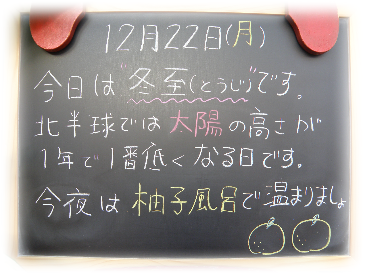 12月22日(月)
今日は"冬至(とうじ)"です。
北半球では太陽の高さが
1年で1番低くなる日です。
今夜は柚子風呂で温まりましょ